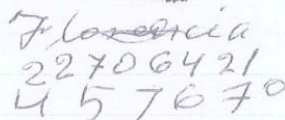 Florencia
22706421
457670